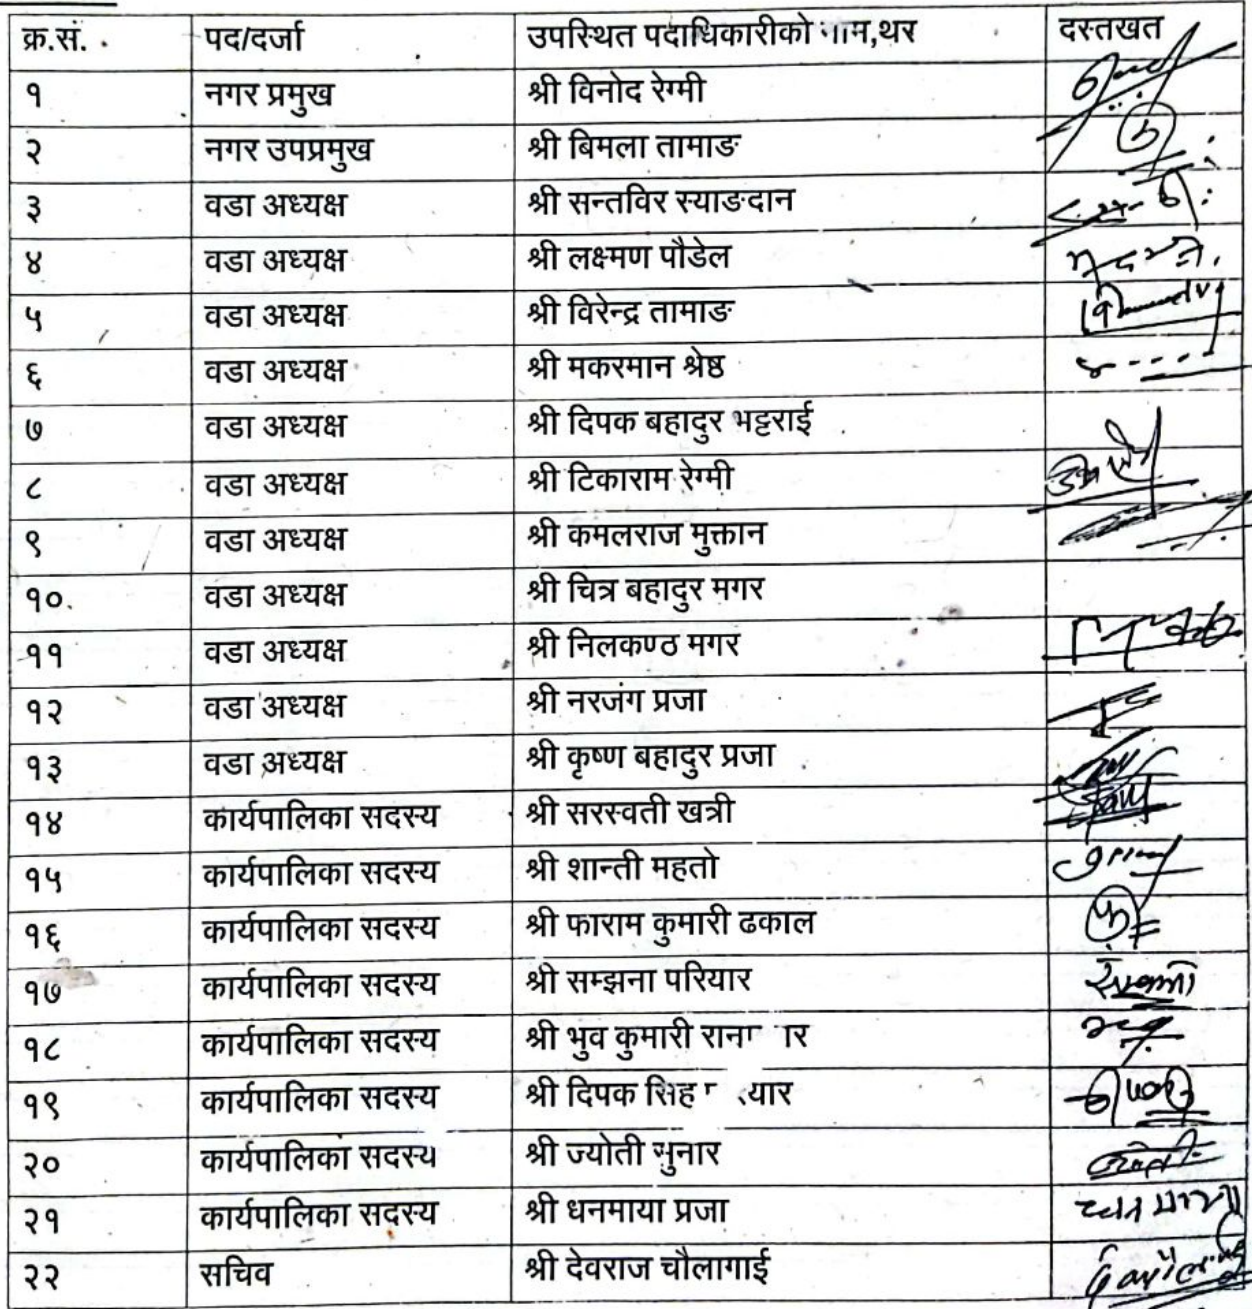 क्र.सं. पद/दर्जा उपस्थित पदाधिकारीको नाम,थर दस्तखत
१ नगर प्रमुख श्री विनोद रेग्मी
२ नगर उपप्रमुख श्री बिमला तामाङ
३ वडा अध्यक्ष श्री सन्तविर स्याङदान
४ वडा अध्यक्ष श्री लक्ष्मण पौडेल
५ वडा अध्यक्ष श्री विरेन्द्र तामाङ
६ वडा अध्यक्ष श्री मकरमान श्रेष्ठ
७ वडा अध्यक्ष श्री दिपक बहादुर भट्टराई
८ वडा अध्यक्ष श्री टिकाराम रेग्मी
९ वडा अध्यक्ष श्री कमलराज मुक्तान
१० वडा अध्यक्ष श्री चित्र बहादुर मगर
११ वडा अध्यक्ष श्री निलकण्ठ मगर
१२ वडा अध्यक्ष श्री नरजंग प्रजा
१३ वडा अध्यक्ष श्री कृष्ण बहादुर प्रजा
१४ कार्यपालिका सदस्य श्री सरस्वती खत्री
१५ कार्यपालिका सदस्य श्री शान्ती महतो
१६ कार्यपालिका सदस्य श्री फाराम कुमारी ढकाल
१७ कार्यपालिका सदस्य श्री सम्झना परियार
१८ कार्यपालिका सदस्य श्री भुव कुमारी
१९ कार्यपालिका सदस्य श्री दिपक सिह
२० कार्यपालिका सदस्य श्री ज्योती सुनार
२१ कार्यपालिका सदस्य श्री धनमाया प्रजा
२२ सचिव श्री देवराज चौलागाई